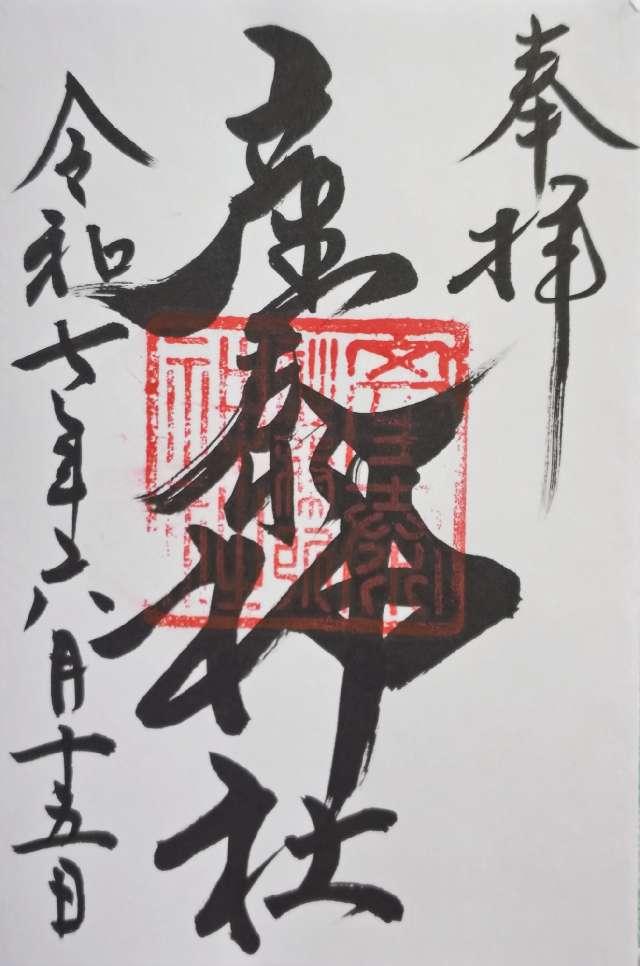 奉拝
産泰神社
令和七年六月十五日